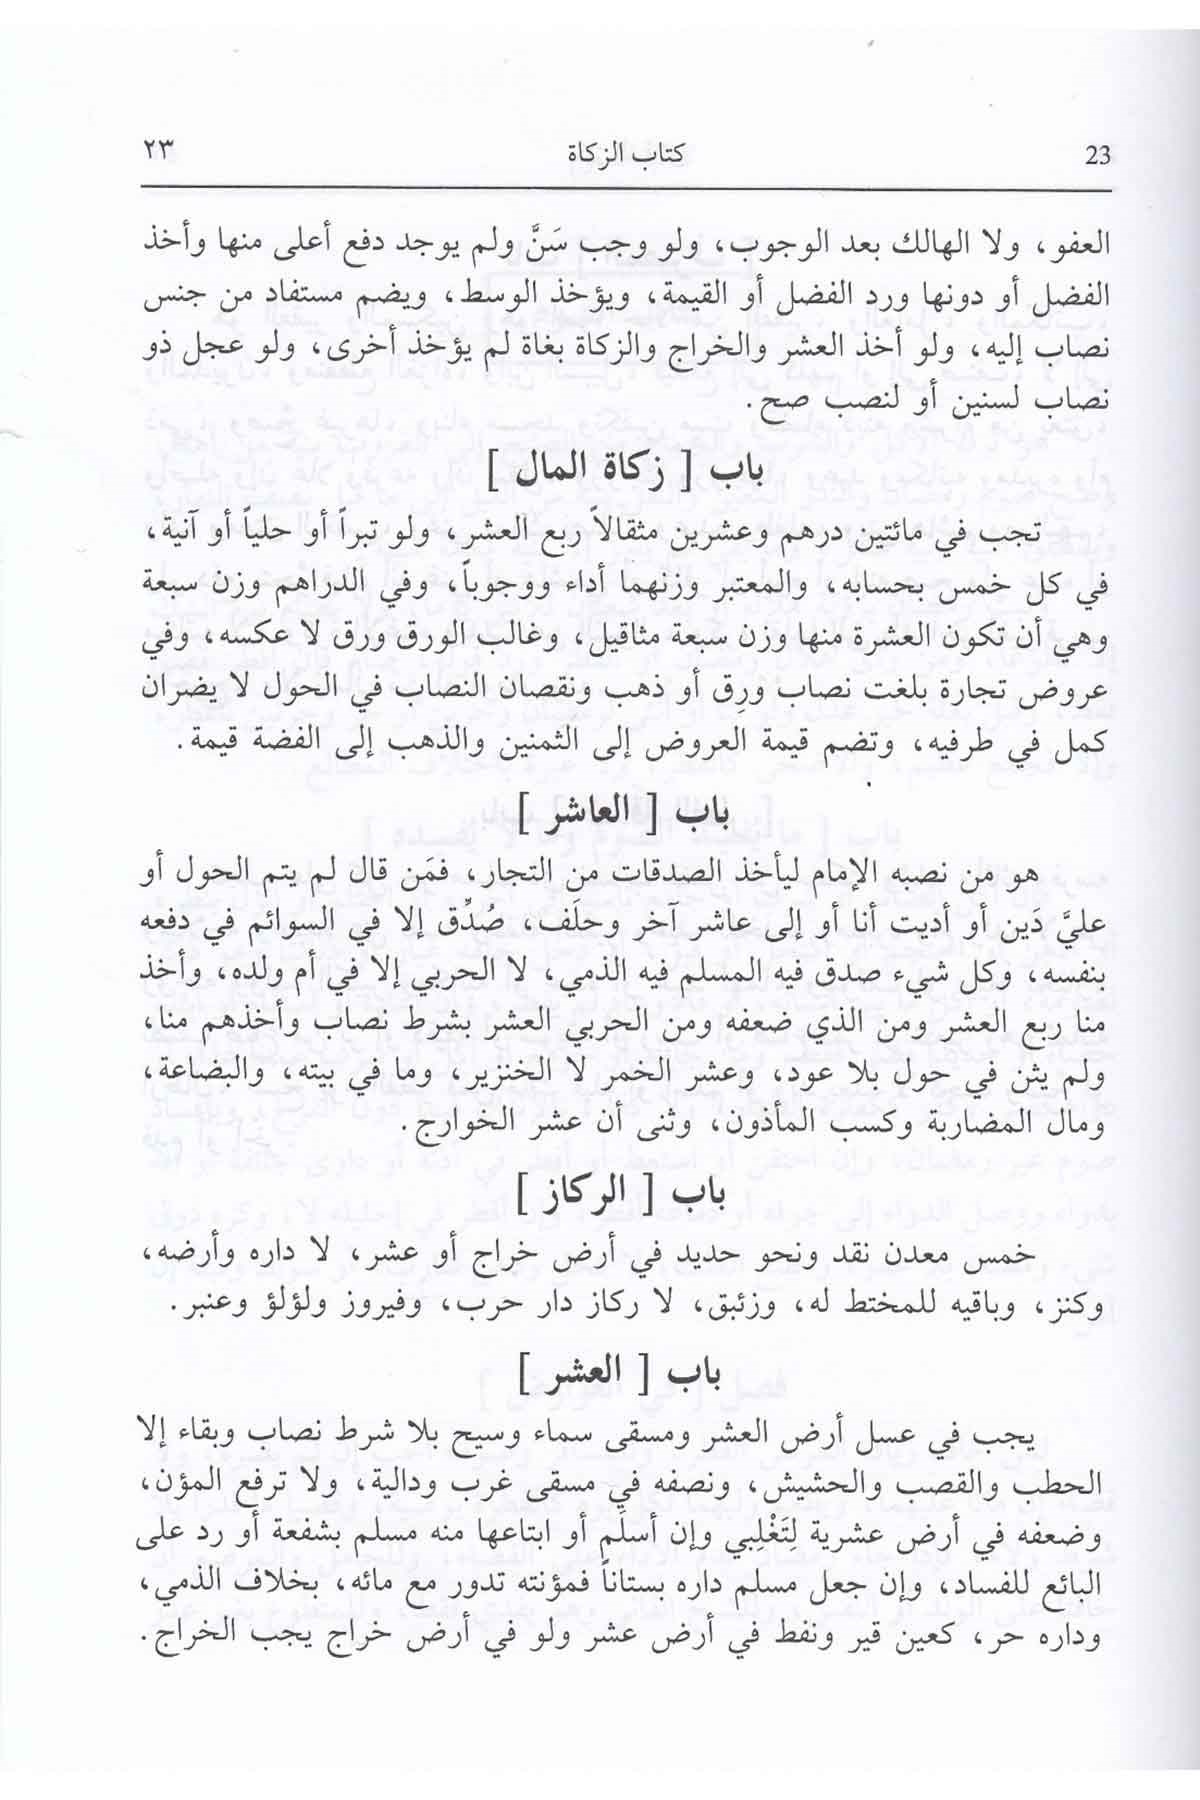 23 كتاب الزكاة ٢٣
العفو، ولا الهالك بعد الوجوب، ولو وجب سَنَّ ولم يوجد دفع أعلى منها وأخذ
الفضل أو دونها ورد الفضل أو القيمة، ويؤخذ الوسط، ويضم مستفاد من جنس
نصاب إليه، ولو أخذ العشر والخراج والزكاة بغاة لم يؤخذ أخرى، ولو عجل ذو
نصاب لسنين أو لنصب صح.
باب [ زكاة المال ]
تجب في مائتين درهم وعشرين مثقالاً ربع العشر، ولو تبراً أو حلياً أو آنية،
في كل خمس بحسابه، والمعتبر وزنهما أداء ووجوباً، وفي الدراهم وزن سبعة
وهي أن تكون العشرة منها وزن سبعة مثاقيل، وغالب الورق ورق لا عكسه، وفي
عروض تجارة بلغت نصاب ورِق أو ذهب ونقصان النصاب في الحول لا يضران
كمل في طرفيه، وتضم قيمة العروض إلى الثمنين والذهب إلى الفضة قيمة.
باب [ العاشر ]
هو من نصبه الإمام ليأخذ الصدقات من التجار، فمَن قال لم يتم الحول أو
عليَّ دَين أو أديت أنا أو إلى عاشر آخر وحلَف، صُدِّق إلا في السوائم في دفعه
بنفسه، وكل شيء صدق فيه المسلم فيه الذمي، لا الحربي إلا في أم ولده، وأخذ
منا ربع العشر ومن الذي ضعفه ومن الحربي العشر بشرط نصاب وأخذهم منا،
ولم يثن في حول بلا عود، وعشر الخمر لا الخنزير، وما في بيته، والبضاعة،
ومال المضاربة وكسب المأذون، وثنى أن عشر الخوارج.
باب [ الركاز ]
خمس معدن نقد ونحو حديد في أرض خراج أو عشر، لا داره وأرضه،
وكنز، وباقيه للمختط له، وزئبق، لا ركاز دار حرب، وفيروز ولؤلؤ وعنبر.
باب [ العشر ]
يجب في عسل أرض العشر ومسقى سماء وسيح بلا شرط نصاب وبقاء إلا
الحطب والقصب والحشيش، ونصفه في مسقى غرب ودالية، ولا ترفع المؤن،
وضعفه في أرض عشرية لِتَغْلِبي وإن أسلَم أو ابتاعها منه مسلم بشفعة أو رد على
البائع للفساد، وإن جعل مسلم داره بستاناً فمؤنته تدور مع مائه، بخلاف الذمي،
وداره حر، كعين قير ونفط في أرض عشر ولو في أرض خراج يجب الخراج.